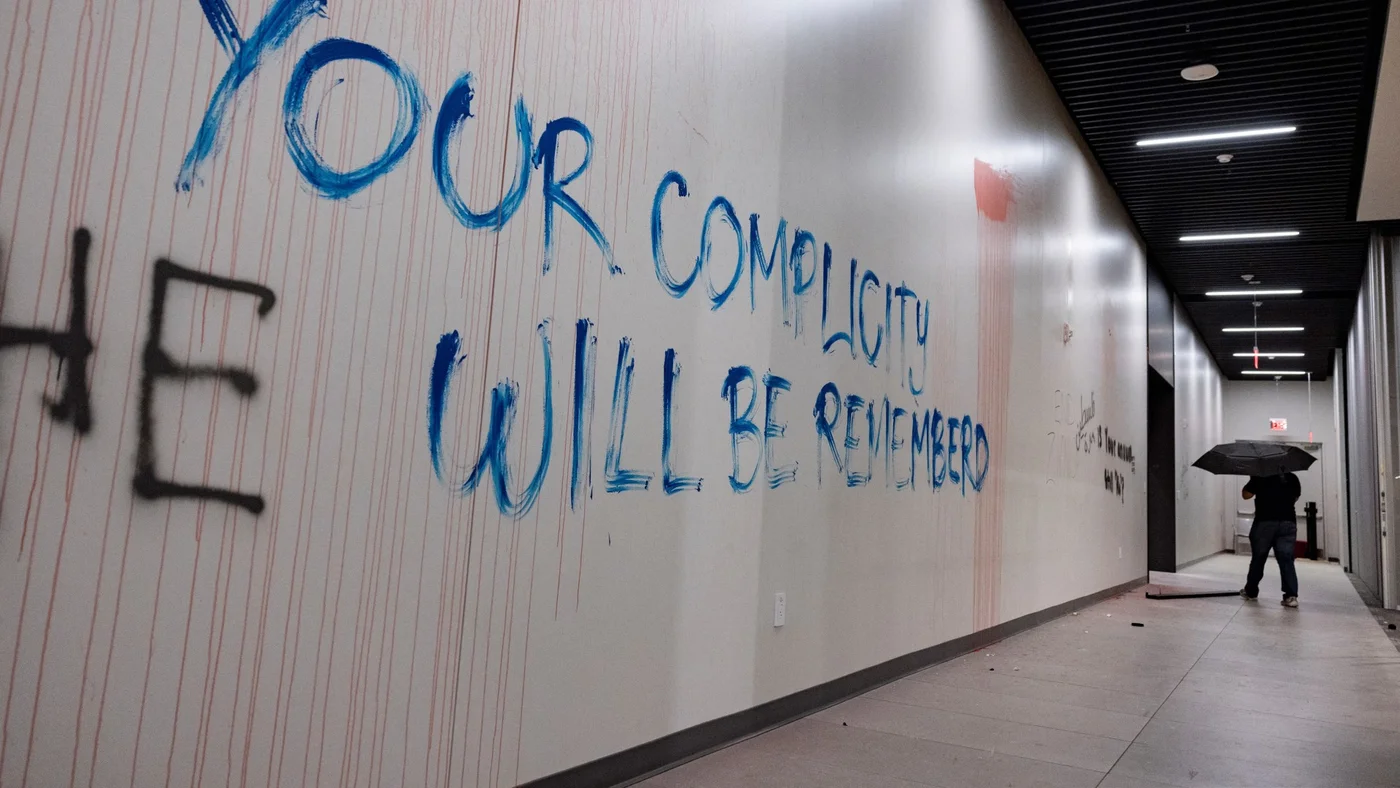 YOUR COMPLICITY
WILL BE REMEMBERD
HE
IS Your